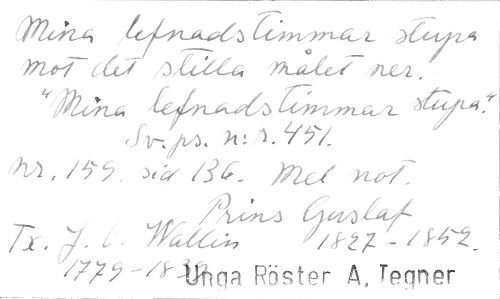 Mina lefnadstimmar stupa
mot det stilla målet ner.
"Mina lefnadstimmar stupa".
Sv. ps. n:r. 451.
nr. 159. sid 136. Mel not.
Prins Gustaf
Tx. J. O. Wallin 1827-1852.
1779-1839
Unga Röster A. Tegner